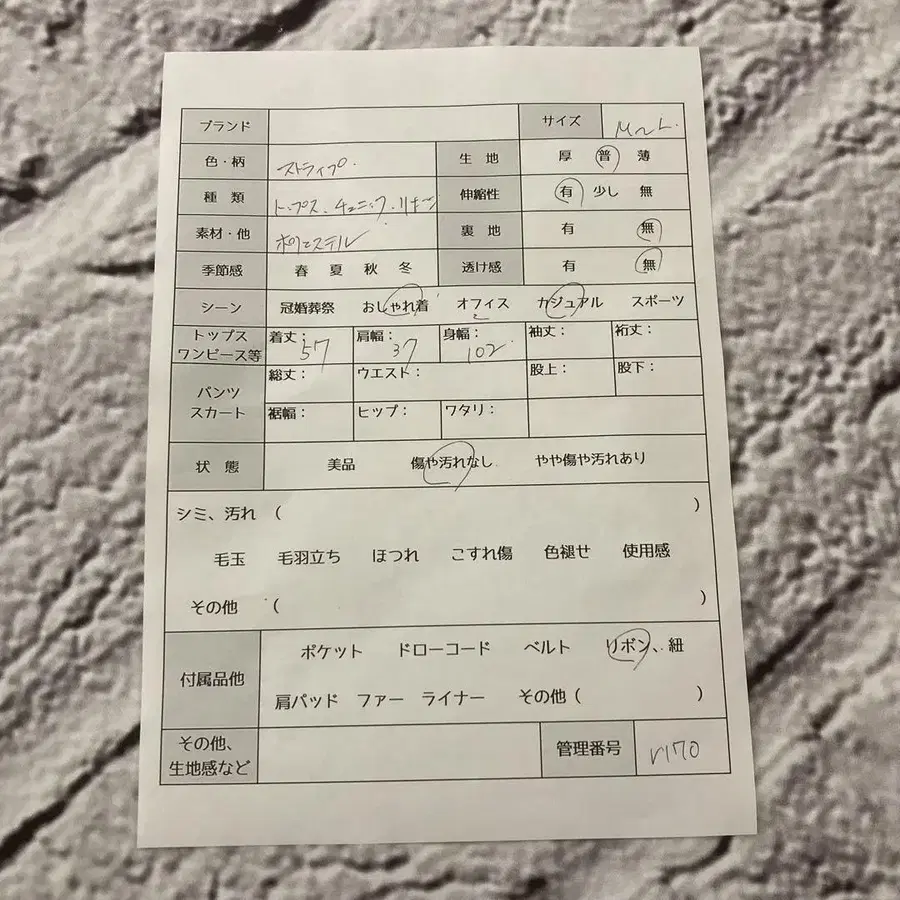 ブランド サイズ M〜L.
色・柄 ストライプ. 生 地 厚 普 薄
種 類 トップス.チュニック. 伸縮性 有 少し 無
素材・他 ポリエステル 裏 地 有 無
季節感 春 夏 秋 冬 透け感 有 無
シーン 冠婚葬祭 おしゃれ着 オフィス カジュアル スポーツ
トップス
ワンピース等 着丈: 57 肩幅: 37 身幅: 102 袖丈: 裄丈:
パンツ
スカート 総丈: ウエスト: 股上: 股下:
裾幅: ヒップ: ワタリ:
状 態 美品 傷や汚れなし やや傷や汚れあり
シミ、汚れ ( )
毛玉 毛羽立ち ほつれ こすれ傷 色褪せ 使用感
その他 ( )
付属品他 ポケット ドローコード ベルト リボン、紐
肩パッド ファー ライナー その他 ( )
その他、
生地感など 管理番号 r170